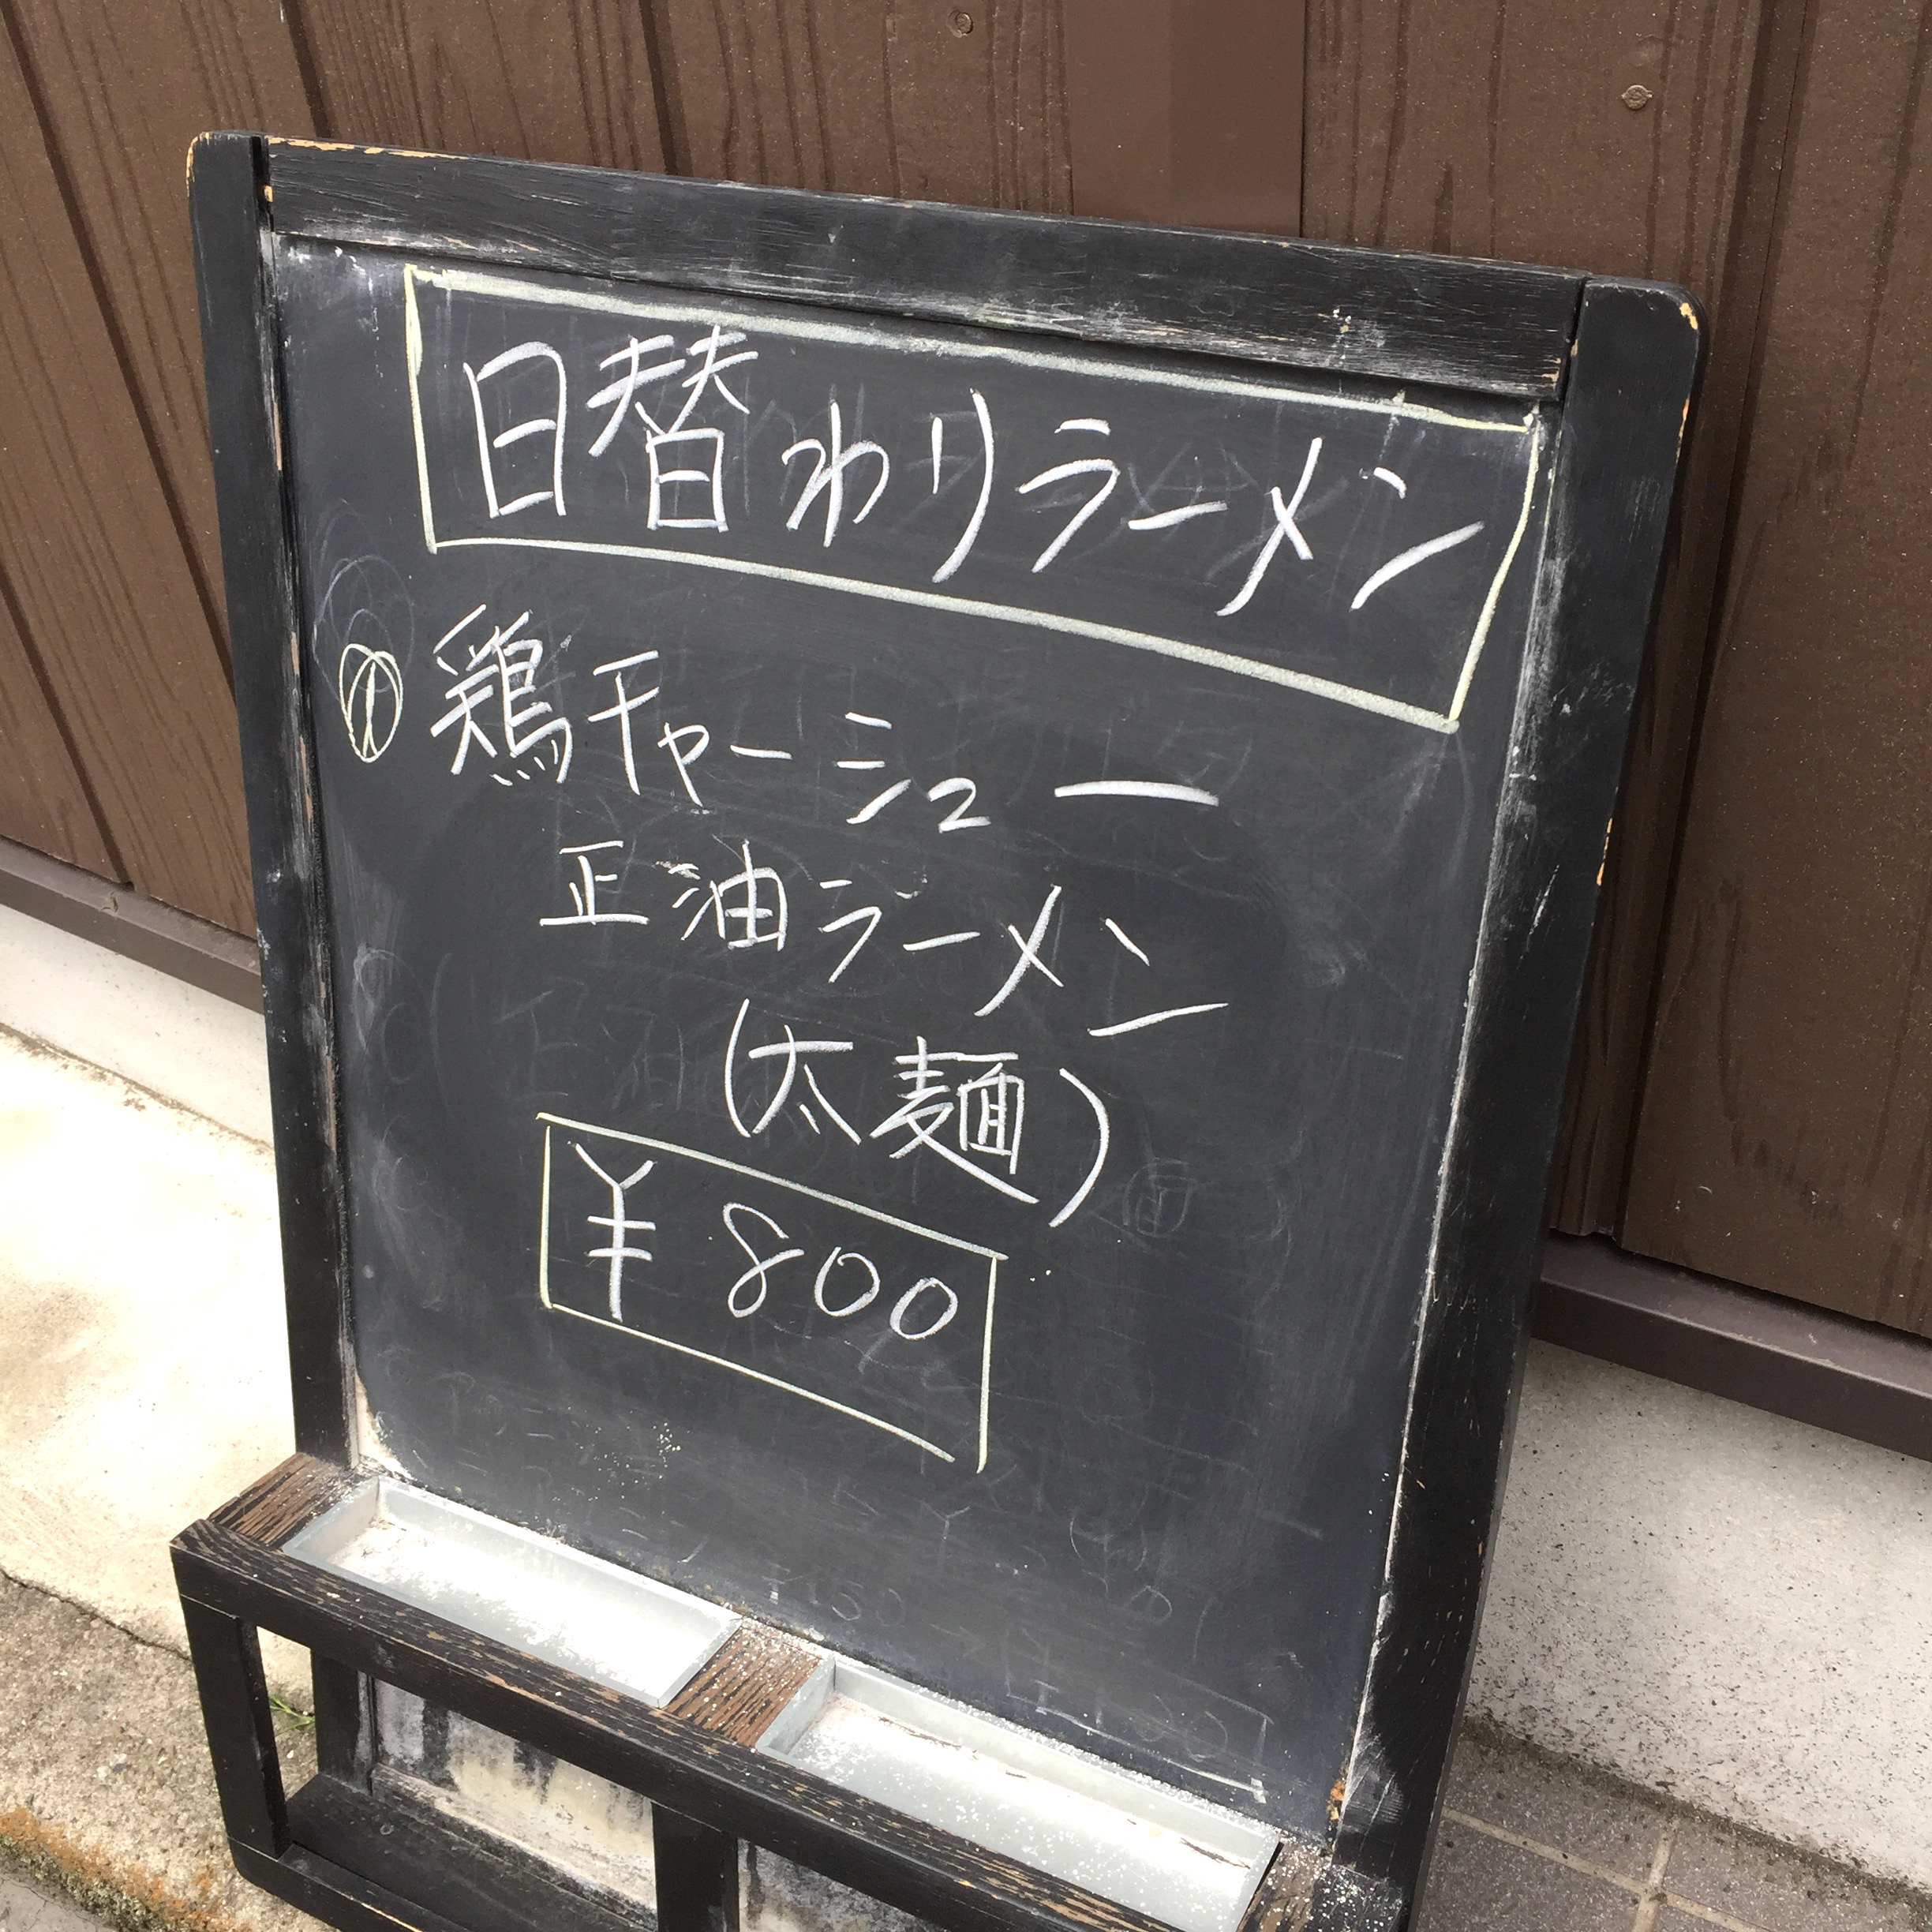 日替わりラーメン
① 鶏チャーシュー
正油ラーメン
(太麺)
¥800